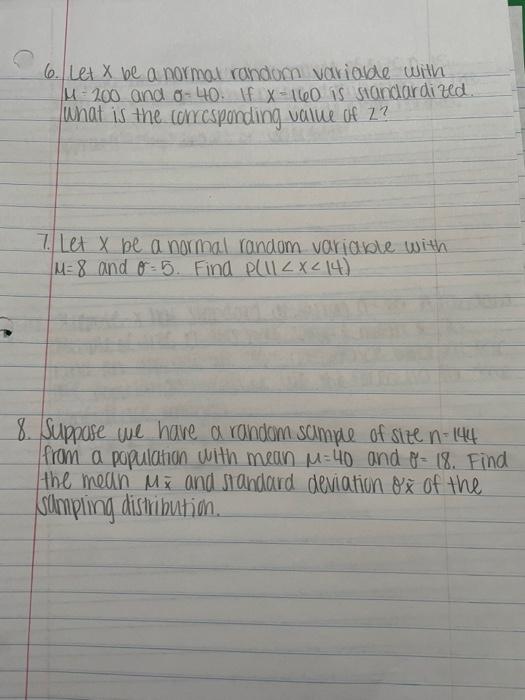 6. Let X be a normal random variable with
μ=200 and σ=40. If x=160 is standardized.
What is the corresponding value of Z?
7. Let X be a normal random variable with
μ=8 and σ=5. Find P(11<X<14)
8. Suppose we have a random sample of size n=144
from a population with mean μ=40 and σ=18. Find
the mean μx̄ and standard deviation σx̄ of the
sampling distribution.